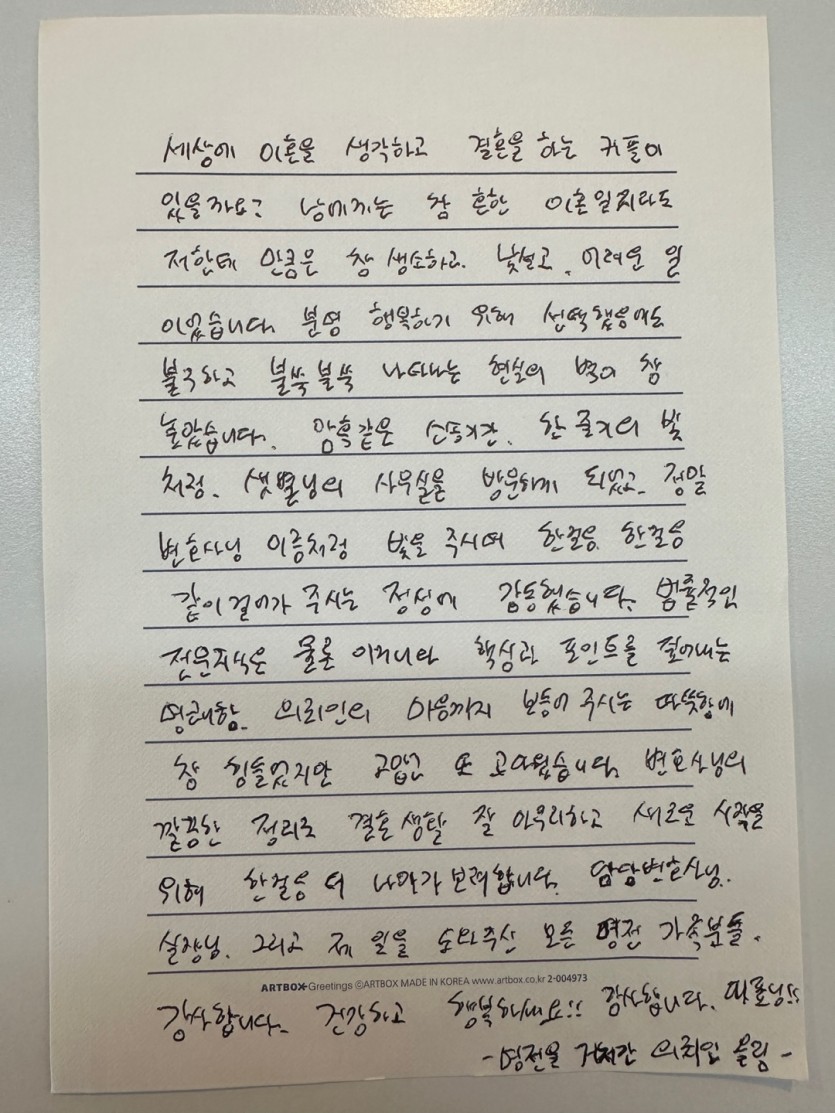 세상에 이혼을 생각하고 결혼을 하는 커플이
있을까요? 남에게는 참 흔한 이혼일지라도
저한테 만큼은 참 생소하고. 낯설고. 어려운 일
이었습니다. 분명 행복하기 위해 선택했음에도
불구하고 불쑥불쑥 나타나는 현실의 벽이 참
높았습니다. 암흑같은 소송기간. 한 줄기의 빛
처럼. 샛별님의 사무실을 방문하게 되었고. 정말
변호사님 이름처럼 빛을 주시며 한걸음. 한걸음
같이 걸어가 주시는 정성에 감동했습니다. 범줄적인
전문지식은 물론 이거니와 핵심과 포인트를 짚어내는
명쾌함. 의뢰인의 마음까지 보듬어 주시는 따뜻함에
참 힘들었지만 고맙고 또 고마웠습니다. 변호사님의
깔끔한 정리로 결혼생활 잘 마무리하고 새로운 시작을
위해 한걸음 더 나아가보려합니다. 담당변호사님.
실장님. 그리고 제 일을 도와주신 모든 명전 가족분들.
ARTBOX Greetings ⓒARTBOX MADE IN KOREA www.artbox.co.kr 2-004973
감사합니다. 건강하고 행복하세요!! 감사합니다. 대표님!!
-명전을 거쳐간 의뢰인 올림-